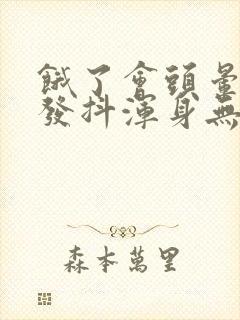 餓了會頭暈
發抖渾身無
森本萬里